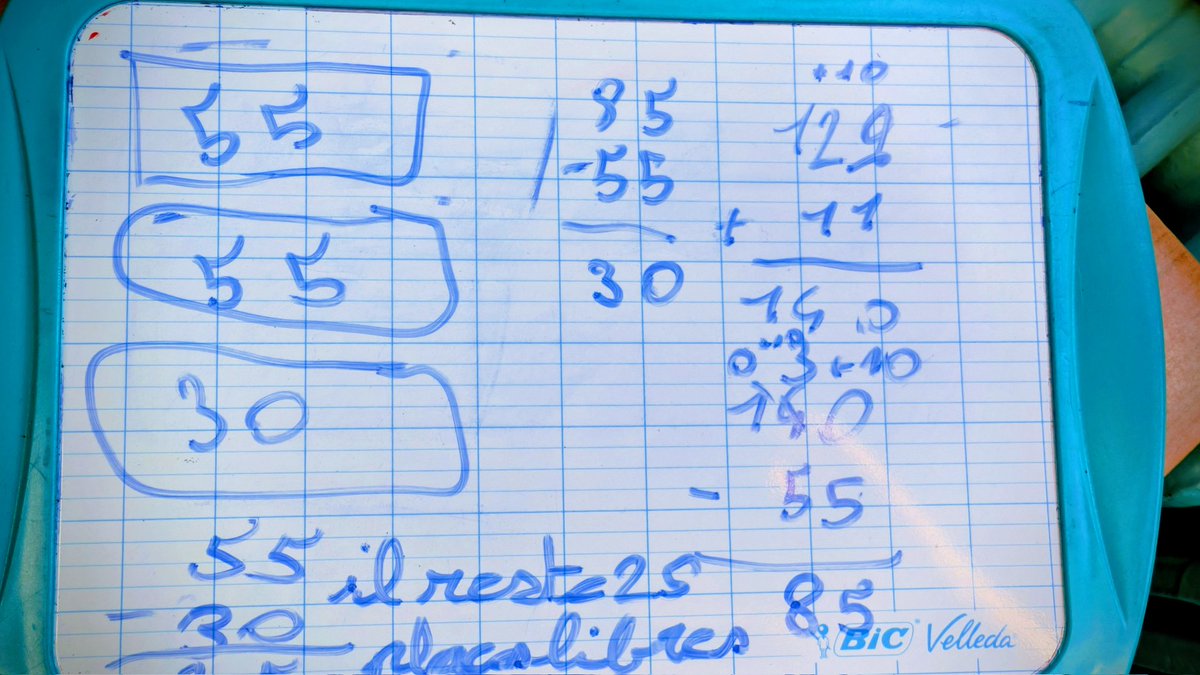 55
55
30
55
- 30
il reste 25
places libres
85
- 55
30
+10
129
+ 11
140
+10
140
- 55
85
BiC Velleda